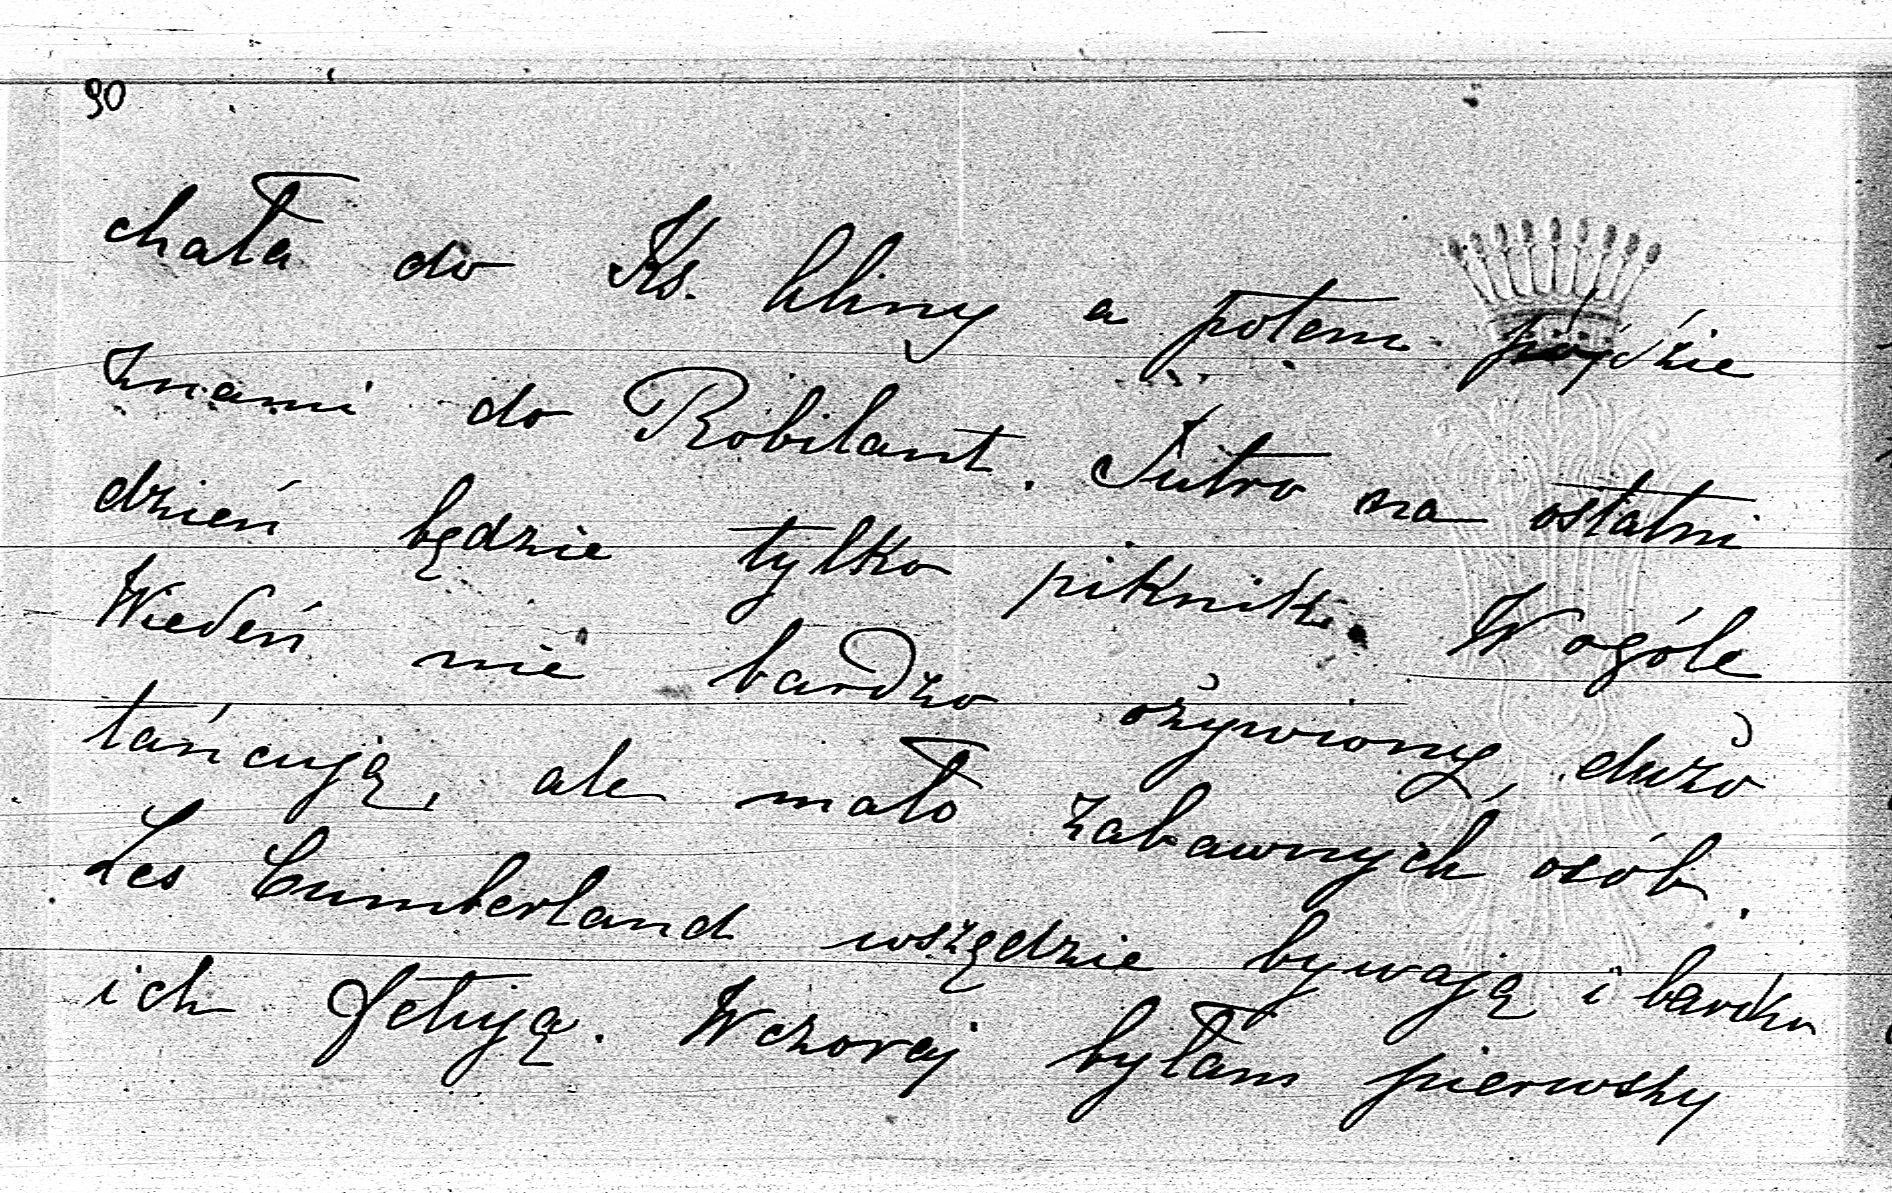 90
chała do Ks. Kliny a potem pójdzie
znami do Robilant. Jutro na ostatni
dzień będzie tylko piknik. Wogóle
Wiedeń nie bardzo ożywiony, dużo
tańcują, ale mało zabawnych osób.
Les Cumberland wszędzie bywają i bardzo
ich fetują. Wczoraj byłam pierwszy